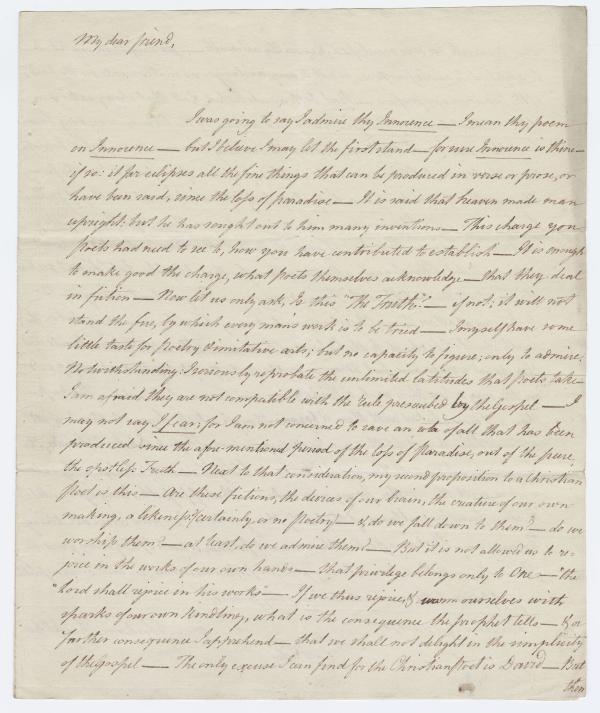 My dear friend,
I was going to say I admire thy Innocence — I mean thy poem
on Innocence — but I believe I may let the first stand — for sure Innocence is thine —
if so: it far eclipses all the fine things that can be produced in verse or prose, or
have been said, since the loss of paradise — It is said that heaven made man
upright: but he has sought out to him many inventions — This charge you
Poets had need to see to, how you have contributed to establish — It is enough
to make good the charge, what Poets themselves acknowledge — that they deal
in fiction — Now let us only ask, Is this "The Truth"? — if not; it will not
stand the fire, by which every man's work is to be tried — I myself have some
little taste for Poetry & imitative arts; but no capacity to figure; only to admire.
Notwithstanding: I seriously reprobate the unlimited latitudes that Poets take —
I am afraid they are not compatible with the Rule prescribed by the Gospel — I
may not say I fear; for I am not concerned to save an iota of all that has been
produced since the afore-mentioned Period of the loss of Paradise, out of the pure,
the spotless Truth — Next to that consideration, my second proposition to a Christian
Poet is, this — Are these fictions, the devices of our brain, the creature of our own
making, a likeness? certainly, or no Poetry — & do we fall down to them? — do we
worship them? — at least, do we admire them? — But it is not allowed us to re-
joice in the works of our own hands — that privilege belongs only to One — "the
"Lord shall rejoice in his works" — If we thus rejoice, & warm ourselves with
sparks of our own kindling, what is the consequence the prophet tells — & a
farther consequence I apprehend — that we shall not delight in the simplicity
of the Gospel — The only excuse I can find for the Christian Poet is David — But
then